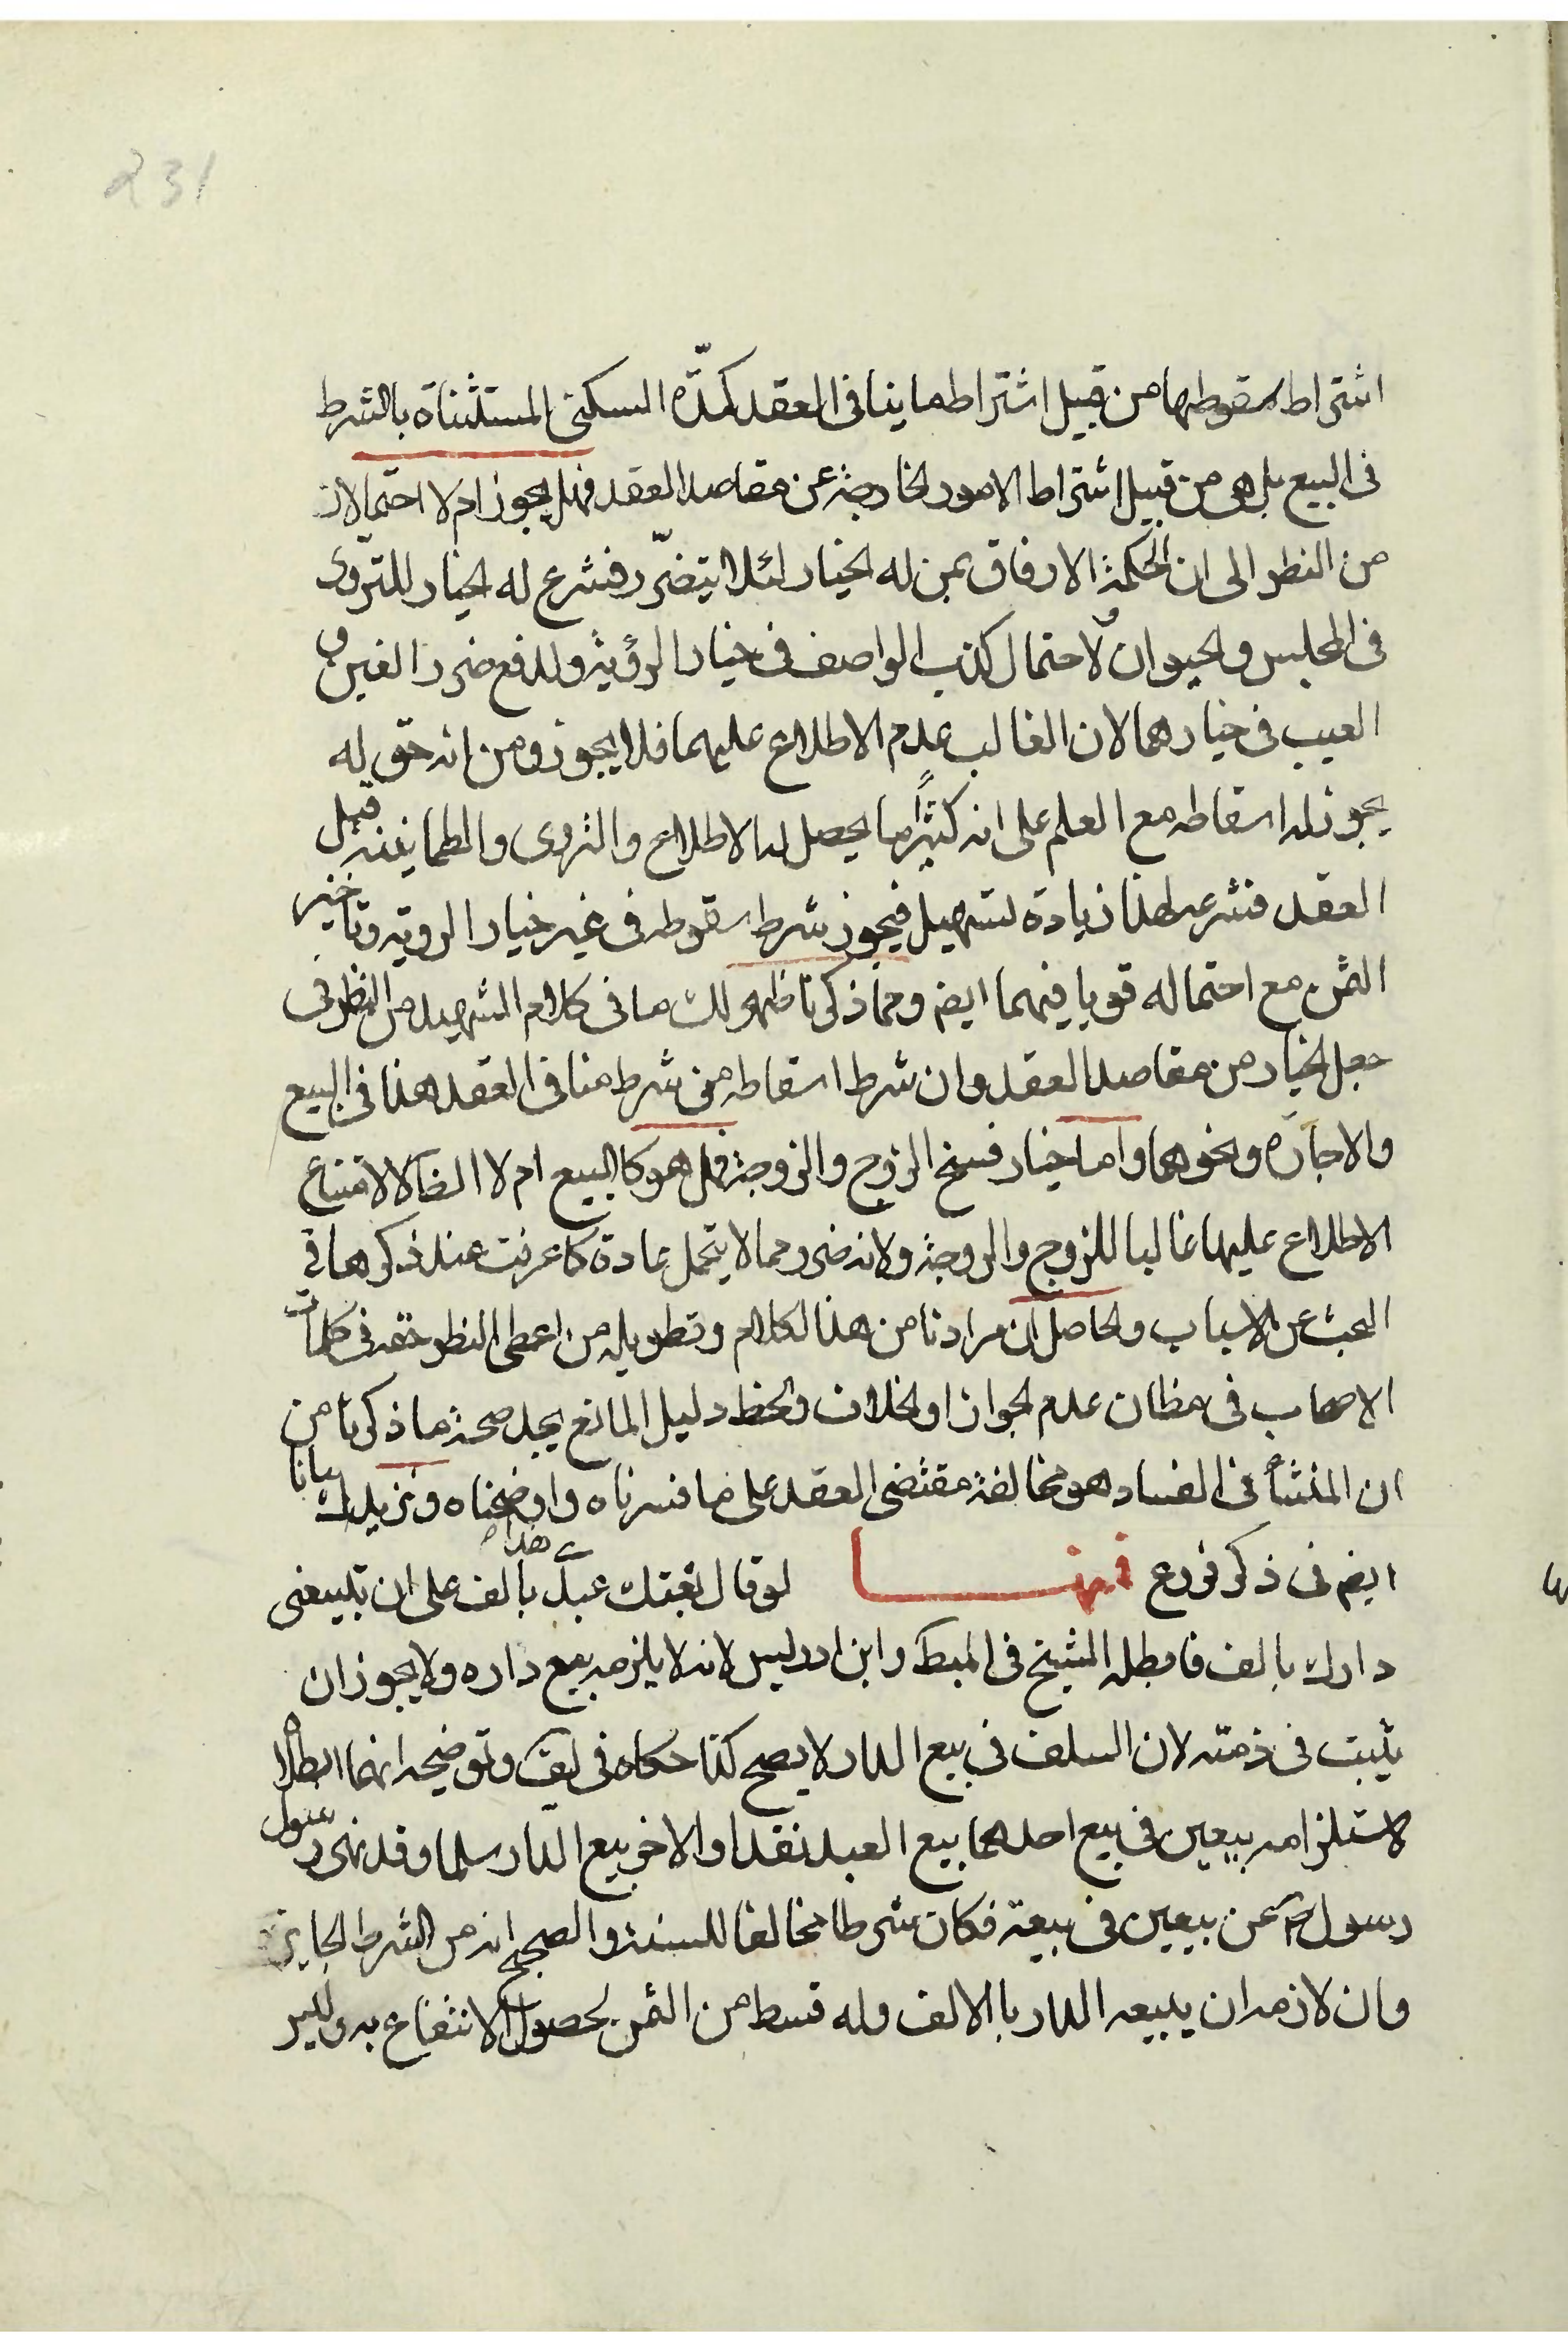 231
اشتراط سقوطها من قبيل اشتراط ما ينافى العقد كمدّة السكنى المستثناة بالشرط
فى البيع بل هى من قبيل اشتراط الامور الخارجة عن مقاصد العقد فهل يجوز ام لا احتمالان
من النظر الى ان الحكمة الارفاق بمن له الخيار لئلا يتضرّر فشرع له الخيار للتروّى
فى المجلس والحيوان ولاحتمال كذب الواصف فى خيار الرؤية ولدفع ضرر الغبن و
العيب فى خيارهما لان الغالب عدم الاطلاع عليهما فلا يجوز ومن انه حق له
يجوز له اسقاطه مع العلم على انه كثيرًا ما يحصل له الاطلاع والتروى والطمانينة قبل
العقد فشرعه لهذا زيادة لتسهيل فيجوز شرط سقوطه فى غير خيار الروية وتاخير
الثمن مع احتماله قويا فيهما ايضم ومما ذكرنا ظهر لك ما فى كلام الشهيد من النظر فى
جعل الخيار من مقاصد العقد وان شرط اسقاطه من شرط منافى العقد هذا فى البيع
والاجارة ونحوهما واما خيار فسخ الزوج والزوجة فهل هو كالبيع ام لا اشكال لامتناع
الاطلاع عليها غالبا للزوج والزوجة ولانه ضرر مما لا يتحمل عادة كما عرفت عند ذكرها فى
البحث عن الاسباب والحاصل ان مرادنا من هذا الكلام وتطويله من اعطى النظر حقه فى كلمات
الاصحاب فى مظان عدم الجواز او الخلاف ولحظ دليل المانع يجد صحة ما ذكرنا من
ان المنشأ فى الفساد هو مخالفة مقتضى العقد على ما فسرناه واوضحناه ونزيدك بيانا
ايضم فى ذكر فروع فمنها لو قال بعتك عبدى هذا بالف على ان تبيعنى
دارك بالف فابطله الشيخ فى المبط وابن ادريس لانه لا يلزمه بيع داره ولا يجوز ان
يثبت فى ذمته لان السلف فى بيع الدار لا يصح كذا حكاه فى لف وتوضيحه انهما ابطلاه
لاستلزامه بيعين فى بيع احدهما بيع العبد نقدا والاخر بيع الدار سلما وقد نهى رسول
رسول عن بيعين فى بيعة فكان شرطا مخالفا للسنة والصحيح انه من الشرط الجايز
وان لازمه ان يبيعه الدار باالالف وله قسط من الثمن لحصول الانتفاع به وليس